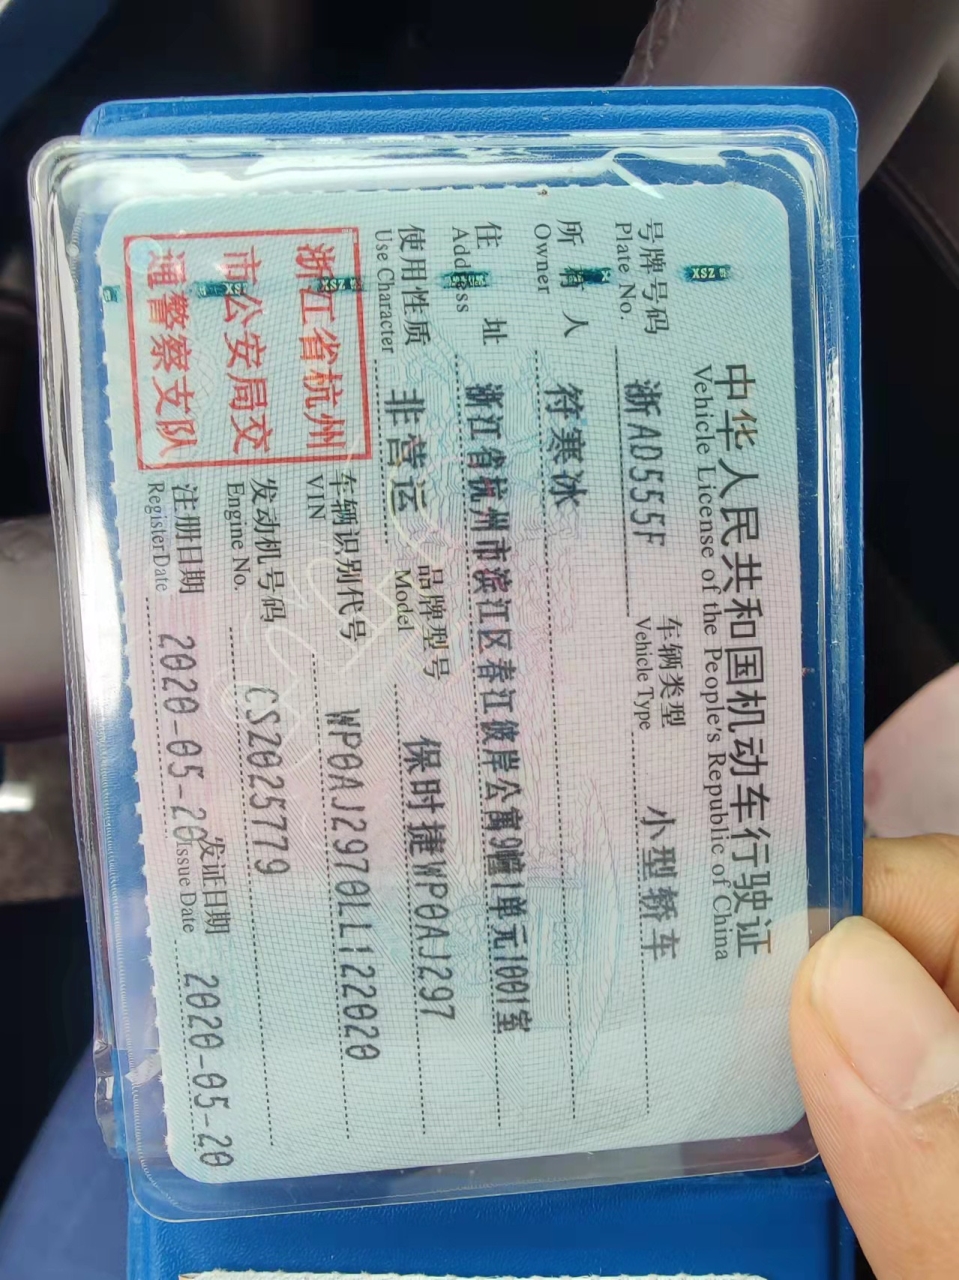 中华人民共和国机动车行驶证
Vehicle License of the People's Republic of China
号牌号码 浙AD5555F 车辆类型 小型轿车
Plate No. Vehicle Type
所有人 符寒冰
Owner
住址 浙江省杭州市滨江区春江彼岸公寓9幢1单元1001室
Address
使用性质 非营运 品牌型号 保时捷WP0AJ297
Use Character Model
浙江省杭州
市公安局交
通警察支队
车辆识别代号 WP0AJ2970LL122020
VIN
发动机号码 CS2025779
Engine No.
注册日期 2020-05-20 发证日期 2020-05-20
Register Date Issue Date
XSZ
XSZ
XSZ